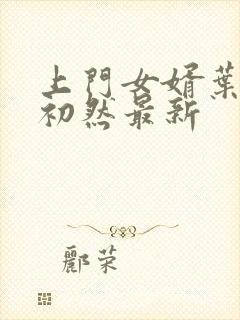 上門女婿葉
初然最新
酈荣